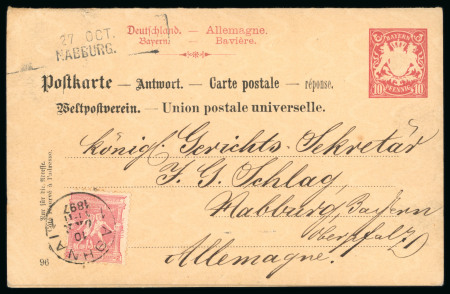 27 OCT.
NABBURG.
Deutschland. — Allemagne.
Bayern. — Bavière.
BAYERN
10 PFENNIG 10
Postkarte — Antwort. — Carte postale — réponse.
Weltpostverein. — Union postale universelle.
Königl. Gerichts-Sekretär
J. G. Schlag,
Nabburg, Bayern
Oberpfalz
Allemagne.
Nur für die Adresse.
Côté réservé à l'adresse.
96
ΑΘΗΝΑΙ
10
1897